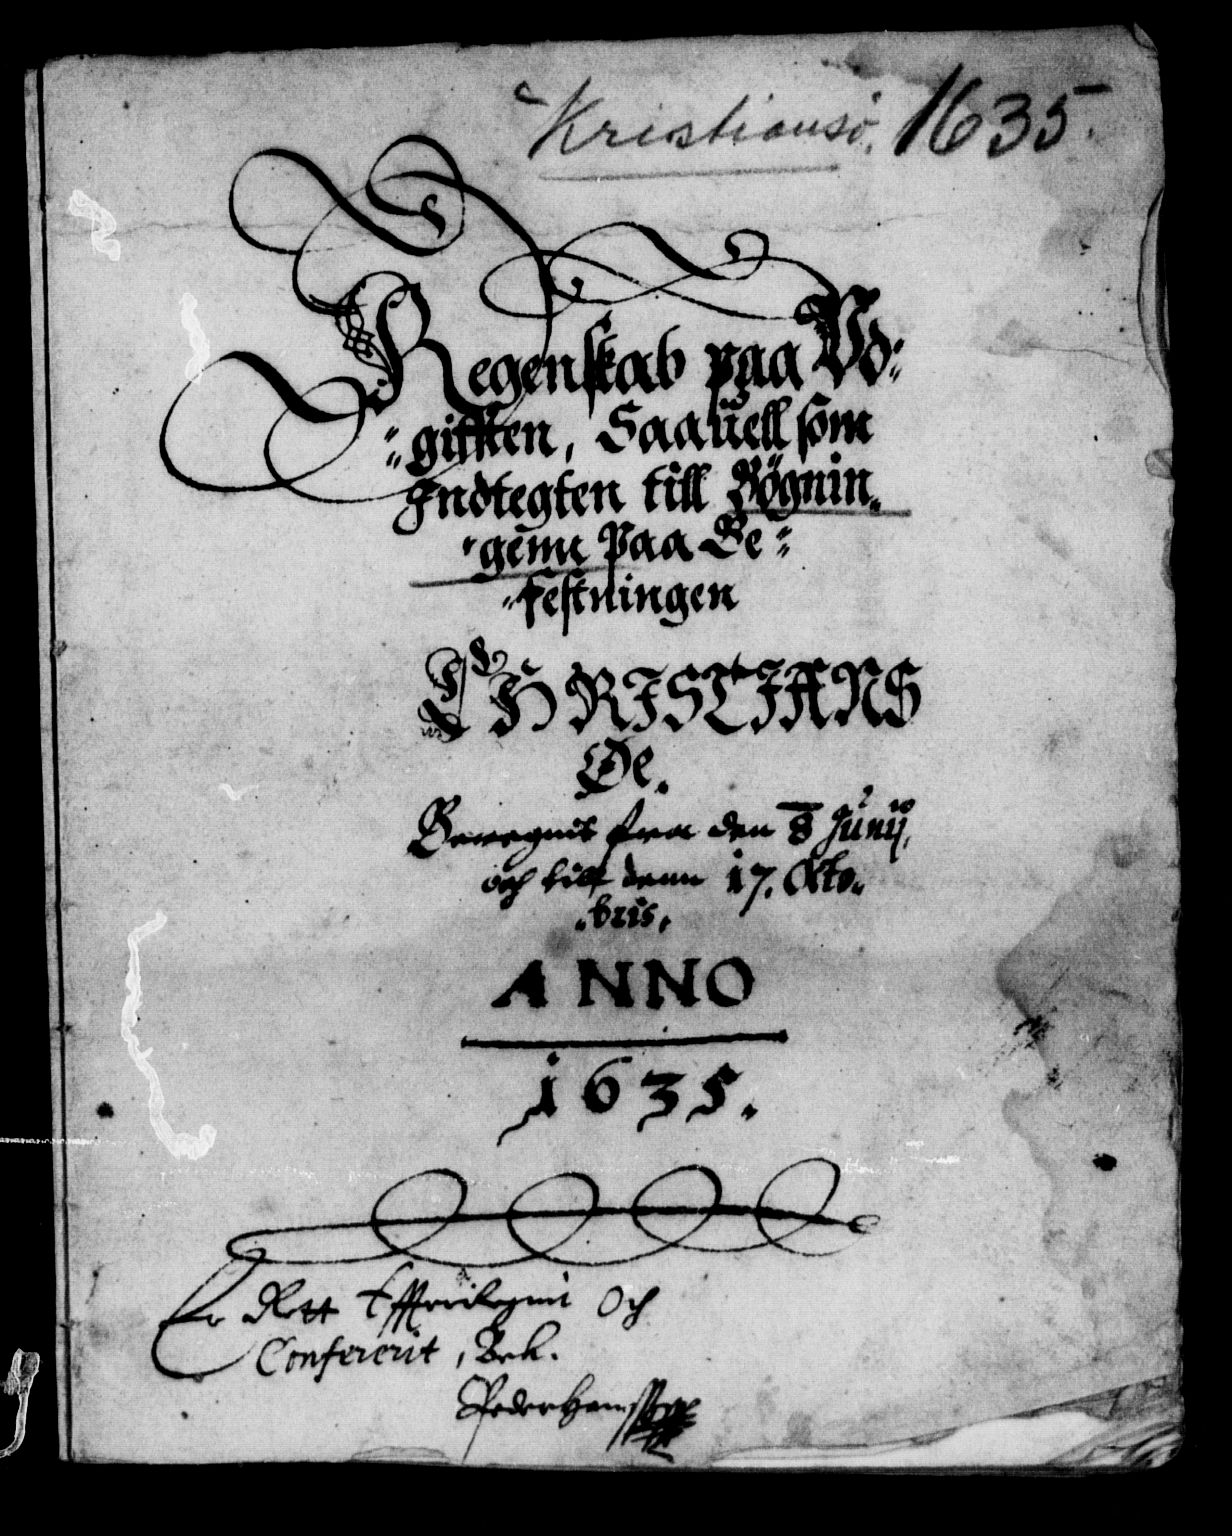 Kristiansö. 1635.
Regenskab paa Vd=
=gifften, Saauell som
Indtegten till Bögnin=
=genn Paa Be=
=festningen
CHRISTIANS
Øe.
Beregnit fra den 8 Junij,
och till denn 17. Octo=
=bris,
ANNO
1635.
Er Rett Offuerlagnit Och
Confererit, Bek.
Peder Hanss